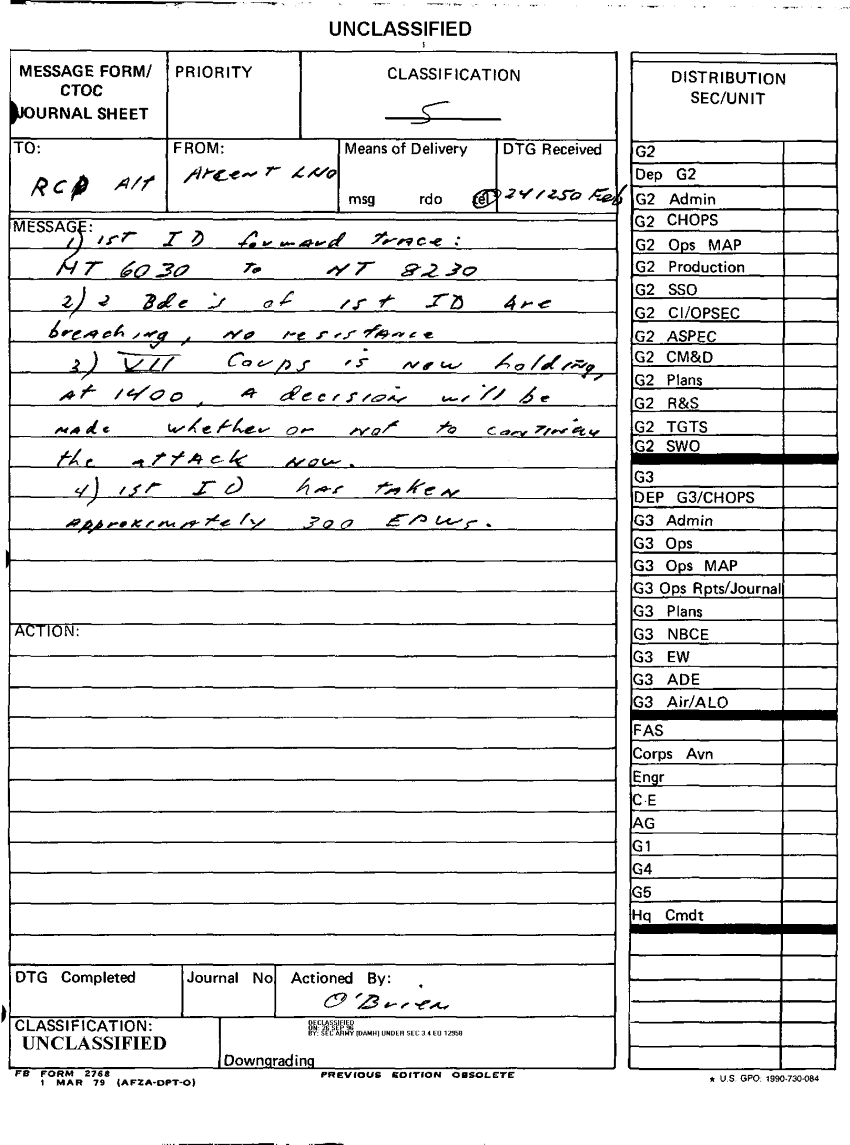 UNCLASSIFIED
MESSAGE FORM/
CTOC
JOURNAL SHEET
PRIORITY
CLASSIFICATION
S
TO:
RCP Alt
FROM:
Arcent LNO
Means of Delivery
msg rdo tel
DTG Received
241250 Feb
MESSAGE:
1) 1st ID forward trace:
NT 6030 To NT 8230
2) 2 Bde's of 1st ID Are
breaching, No resistance
3) VII Corps is now holding,
At 1400, A decision will be
made whether or not to continue
the attack now.
4) 1st ID has taken
Approximately 300 EPWs.
ACTION:
DTG Completed
Journal No
Actioned By:
O'Brien
CLASSIFICATION:
UNCLASSIFIED
DECLASSIFIED
ON: 26 SEP 96
BY: SEC ARMY (DAMH) UNDER SEC 3.4 EO 12958
Downgrading
FB FORM 2768
1 MAR 79 (AFZA-DPT-O)
PREVIOUS EDITION OBSOLETE
DISTRIBUTION
SEC/UNIT
G2
Dep G2
G2 Admin
G2 CHOPS
G2 Ops MAP
G2 Production
G2 SSO
G2 CI/OPSEC
G2 ASPEC
G2 CM&D
G2 Plans
G2 R&S
G2 TGTS
G2 SWO
G3
DEP G3/CHOPS
G3 Admin
G3 Ops
G3 Ops MAP
G3 Ops Rpts/Journal
G3 Plans
G3 NBCE
G3 EW
G3 ADE
G3 Air/ALO
FAS
Corps Avn
Engr
C-E
AG
G1
G4
G5
Hq Cmdt
★ U.S. GPO: 1990-730-084